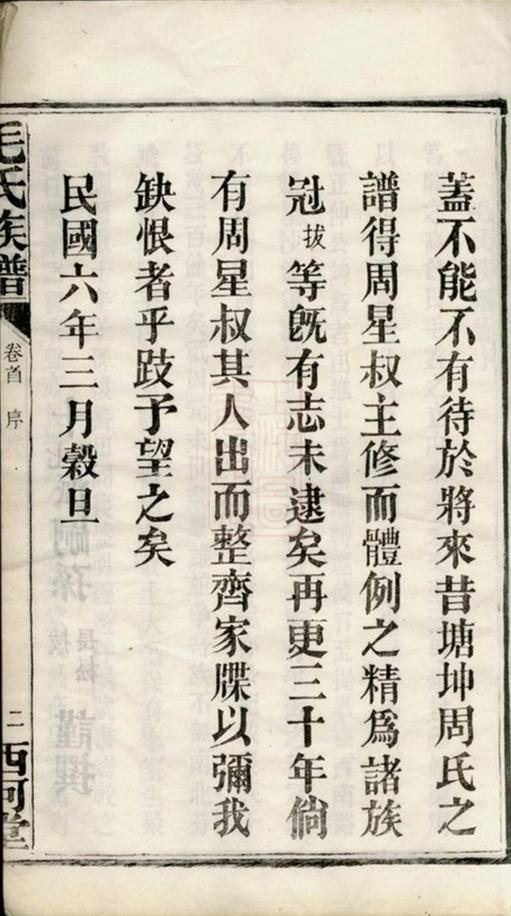 蓋不能不有待於將來昔塘坤周氏之
譜得周星叔主修而體例之精爲諸族
冠拔等旣有志未逮矣再更三十年倘
有周星叔其人出而整齊家牒以彌我
缺恨者乎跂予望之矣
民國六年三月穀旦
毛氏族譜
卷首 序
二
西河堂